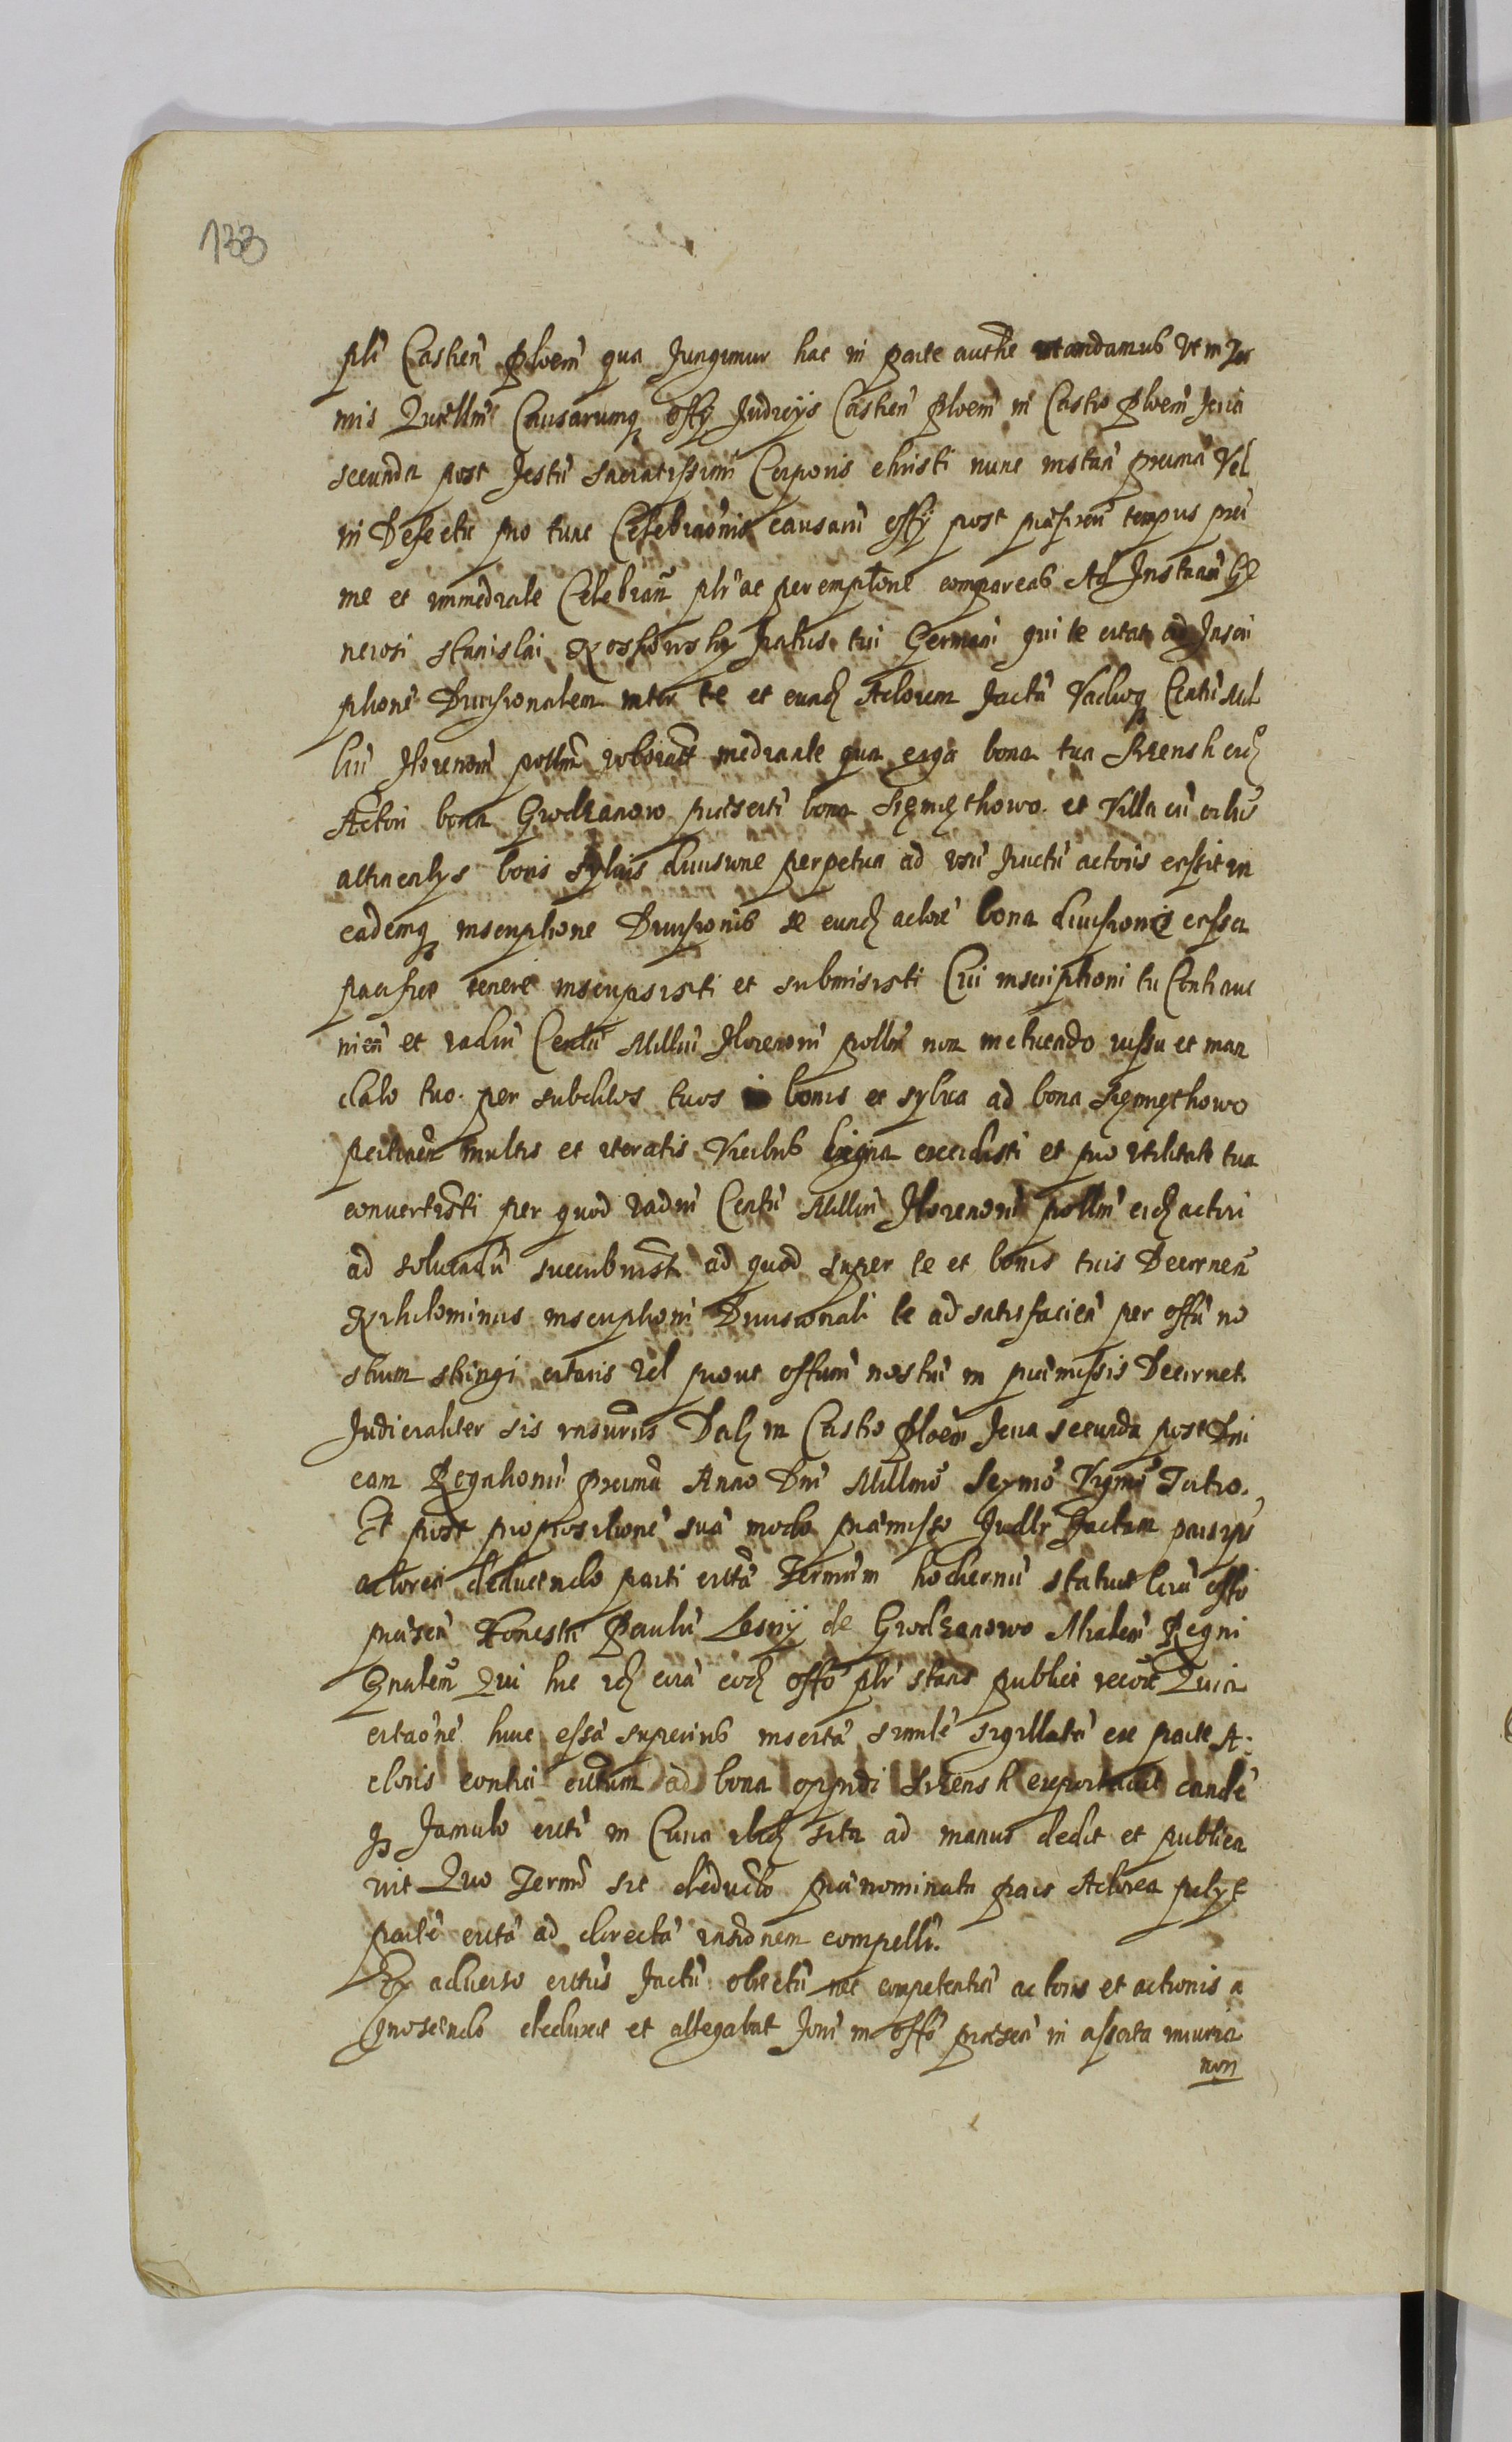 133
pli Castren̄ Plocen̄ qua fungimur hac in parte authē mandamus Vt in Ter
mis Querellar̄ Causarumq officy Judicys Castren̄ Plocen̄ in Castro Plocen̄ feria
secunda post festū sacratissimi Corporis christi nunc instan̄ proxima Vel
in Defectu pro tunc Celebraōnis causarū officy post praefixū tempus pri
me et immediate Celebran̄ plr̄ ac peremptorie compareas Ad Instan̄ Ge
nerosi stanislai Koskowsky fratris tui Germani qui te citat ad Inscri
ptionē Divisionalem inter te et eund Actorem factā Vadioq Centū Mil
liū florenorū pollīn roboratā mediante qua erga bona tua Srensk eid
Actori bona Grodzanowo praesertī bona Siemięthowo et Villa cū erliū
attinentys bonis sylvis divisione perpetua ad usū fructū actoris cessit in
eademq inscriptione Divisionis te eund actorē bona divisionis cessa
pacifice tenere inscripsisti et submisisti Cui inscriptioni tu Contrave
nien̄ et vadiū Centū Milliū florenorū pollīn non metuendo iussu et man
dato tuo per subditos tuos in bonis et sylva ad bona Siemięthowo
pertinen̄ multis et iteratis Vicibus ligna excidisti et pro vtilitate tua
convertisti per quod vadiū Centū Milliū florenorū pollīn eid actori
ad solvendū succubuisti ad quod super te et bonis tuis Decernen̄
Nihilominus inscriptioni Divisionali te ad satisfacien̄ per offū no
strum stringi citaris Vel prout offium nostrū in praemissis Decernet
Judicialiter sis responsurus Dat in Castro Plocen̄ feria secunda post Dni
cam Rogationū proxima Anno Dni Millmo Sexmo Vigmo Tertio.
Et post propositionē suā modo praemisso Judlr factam pars ips
actorea deducendo parti citatā Terminum hodiernū statuit corā offo
praesen̄ Honestū Paulū Lesny de Grodzanowo Mialem Regni
Gnalem Qui hic ibid corā eod offo plr stans publice recogt Quia
citaōnē huic essā superius insertā similē sigillatā ex parte A:
ctoris contra citatum ad bona oppidi Srensk exportavit eandē
q famulo citati in Curia ibid sita ad manus dedit et publica
vit Quo Termō sic deducto praenominata pars Actorea petyt
partē citatā ad directā respōnem compelli.
Ex adverso citatus factū obiectū nec competentiā actoris et actionis a
gnoscendo deduxit et allegabat forū in offo praesen̄ in asserta iniuria
non